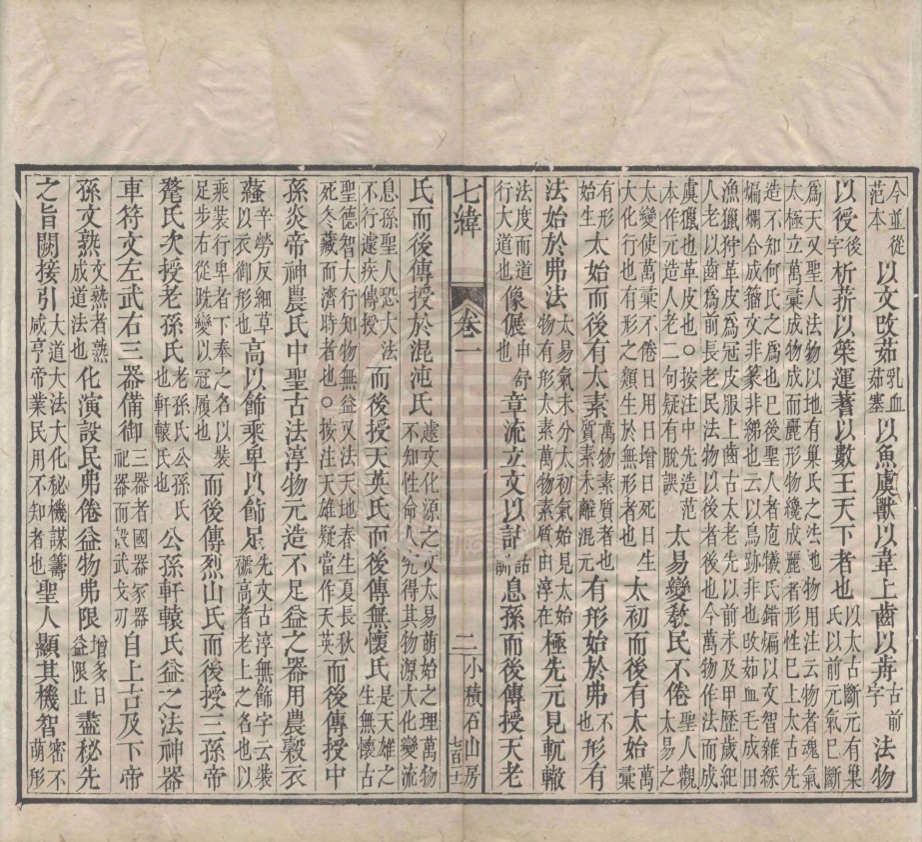 今並從范本以文改茹乳血茹塞以魚虞獸以韋上齒以舟古前字法物
以授後字析菥以筞運蓍以數王天下者也以太古斷元有巢氏以前元氣巳斷
為天又聖人法物以地有巢氏之法地物用注云物者魂氣
太極立萬彙成物成而麗形物纔成麗者形性巳上太古古先
造不知何氏之為也巳後聖人者庖犧氏錯煸以文智雜綵
煸爛合成籀文非篆非綈也云以鳥跡非也改茹血毛成田
漁獵狩革皮為冠皮服上齒古太老先以前未及甲歷歲紀
人老以齒為前長老民法物以後者後也今萬物作法而成
虞獵也革皮也○按注中先造范本作元造人老二句疑有脫誤太易變教民不倦聖人觀太易之
太變使萬彙不倦日用日增日死日生大化行也太有形之類生於無形者也太初而後有太始萬彙
有形始生太始而後有太素萬物素質者也質素未離混元有形始於弗不也形有
法始於弗法太易氣未分太初氣始見太始物有形太素萬物素質由淳在極先元見軌轍
法度而道行大道也像偃舒申也章流立文以詁詁訓息孫而後傳授天老
七緯 卷一 二 小積石山房 七百十
氏而後傳授於混沌氏遽文化源之文太易萌始之理萬物不知性命人宄得其物源大化變流
息孫聖人恐大法不行濾疾傳授而後授天英氏而後傳無懷氏是天雄之生無懷古
聖德智大行知物無益又法天地春生夏長秋死冬藏而濟時者○按注天雄疑當作天英而後傳授中
孫炎帝神農氏中聖古法淳物元造不足益之器用農穀衣
辛勞反細草以衣御形也高以飾乘卑以飾足先文古淳無飾字云裝高者老上之名也以
乘裝行卑者下奉之名以裝足步右從跣變以冠履也而後傳烈山氏而後授三孫帝
氏次授老孫氏老孫氏公孫氏也軒轅氏也公孫軒轅氏益之法神器
車符文左武右三器備御三器者國器家器祀器而設武戈刃自上古及下帝
孫文熟文熟者熟成道法也化演設民弗倦益物弗限增多日益限止盡秘先
之旨闕接引大道大法大化秘機謀籌咸亨帝業民用不知者也聖人顯其機智密不萌形